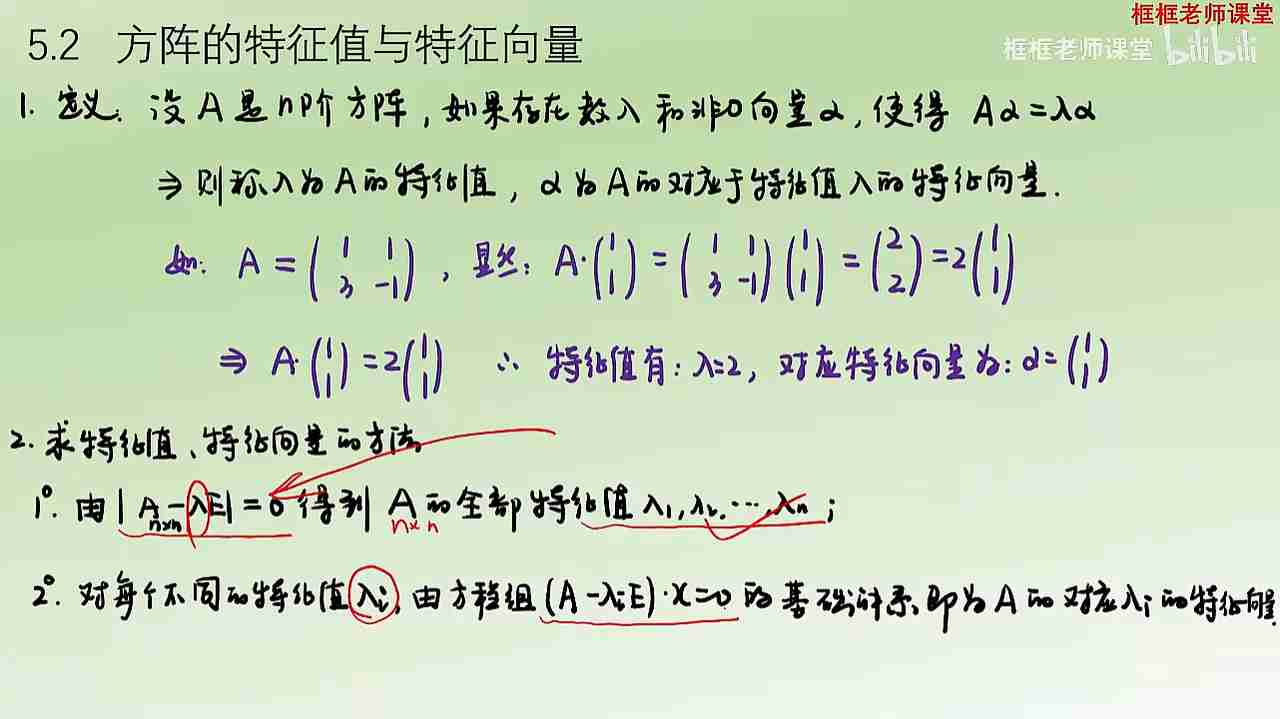 框框老师课堂
框框老师课堂 bilibili
5.2 方阵的特征值与特征向量
1. 定义: 设 A 是 n阶方阵, 如果存在数 λ 和非0向量 α, 使得 Aα=λα
⇒ 则称 λ 为 A 的特征值, α 为 A 的对应于特征值 λ 的特征向量.
如: A = (1 1; 3 -1), 显然: A·(1; 1) = (1 1; 3 -1)(1; 1) = (2; 2) = 2(1; 1)
⇒ A·(1; 1) = 2(1; 1) ∴ 特征值有: λ=2, 对应特征向量为: α=(1; 1)
2. 求特征值、特征向量的方法
1°. 由 |A-λE|=0 得到 A 的全部特征值 λ₁,λ₂,…,λₙ;
n×n n×n
2°. 对每个不同的特征值 λᵢ, 由方程组 (A-λᵢE)·x=0 的基础解系, 即为 A 的对应 λᵢ 的特征向量.